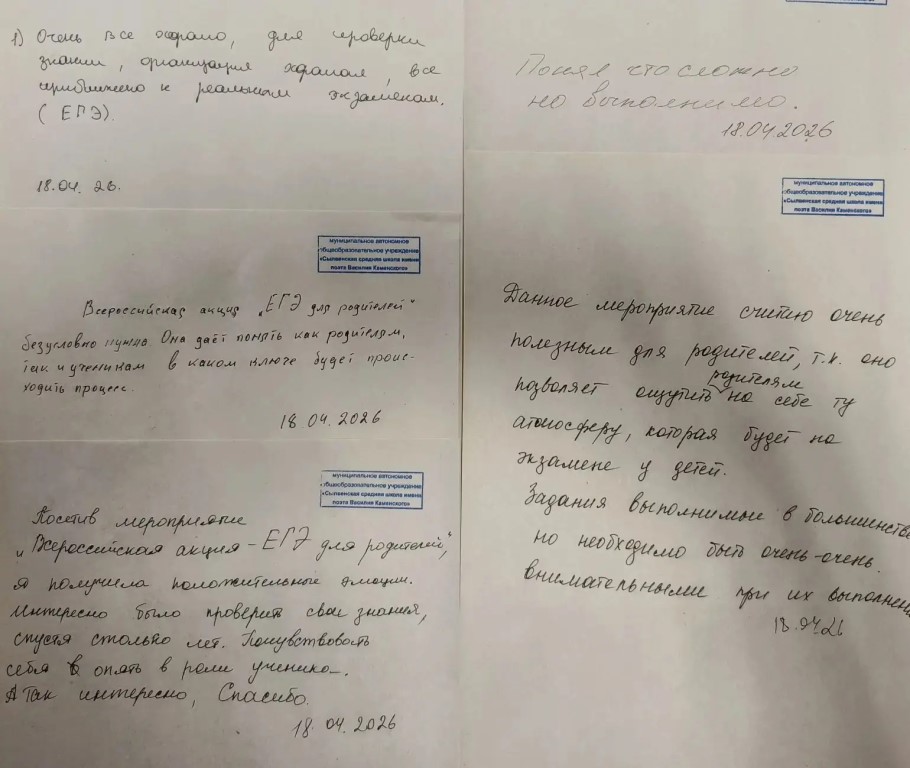 1) Очень все хорошо, для проверки
знании, организация хорошая, все
приближено к реальным экзаменам.
(ЕГЭ).
18.04.26.
муниципальное автономное
общеобразовательное учреждение
«Сылвенская средняя школа имени
поэта Василия Каменского»
Всероссийская акция „ЕГЭ для родителей"
безусловно нужна. Она даёт понять как родителям,
так и ученикам в каком ключе будет проис-
ходить процесс.
18.04.2026
муниципальное автономное
общеобразовательное учреждение
«Сылвенская средняя школа имени
поэта Василия Каменского»
Посетив мероприятие
„Всероссийская акция - ЕГЭ для родителей",
я получила положительные эмоции.
Интересно было проверить свои знания,
спустя столько лет. Почувствовать
себя опять в роли ученика.
А так интересно, Спасибо.
18.04.2026
поэта Василия Каменского»
Понял, что сложно
но выполнимо.
18.04.2026
муниципальное автономное
общеобразовательное учреждение
«Сылвенская средняя школа имени
поэта Василия Каменского»
Данное мероприятие считаю очень
полезным для родителей, т.к. оно
позволяет ощутить родителям на себе ту
атмосферу, которая будет на
экзамене у детей.
Задания выполнимые в большинстве
но необходимо быть очень-очень
внимательными при их выполнени
18.04.26